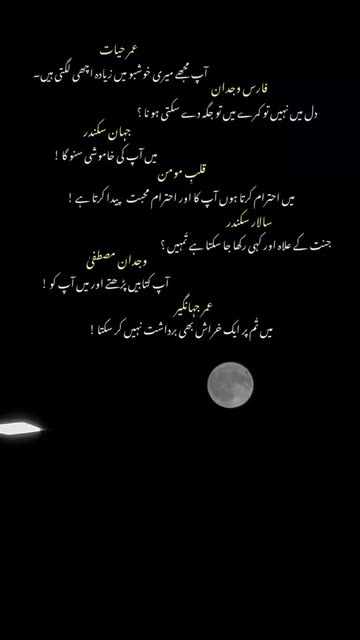 عمر حیات
آپ مجھے میری خوشبو میں زیادہ اچھی لگتی ہیں۔
فارس وجدان
دل میں نہیں تو کمرے میں تو جگہ دے سکتی ہو نا ؟
جہان سکندر
میں آپ کی خاموشی سنو گا !
قلبِ مومن
میں احترام کرتا ہوں آپ کا اور احترام محبت پیدا کرتا ہے !
سالار سکندر
جنت کے علاہ اور کہی رکھا جا سکتا ہے تُمہیں ؟
وجدان مصطفیٰ
آپ کتابیں پڑھتے اور میں آپ کو !
عمر جہانگیر
میں تُم پر ایک خراش بھی برداشت نہیں کر سکتا !